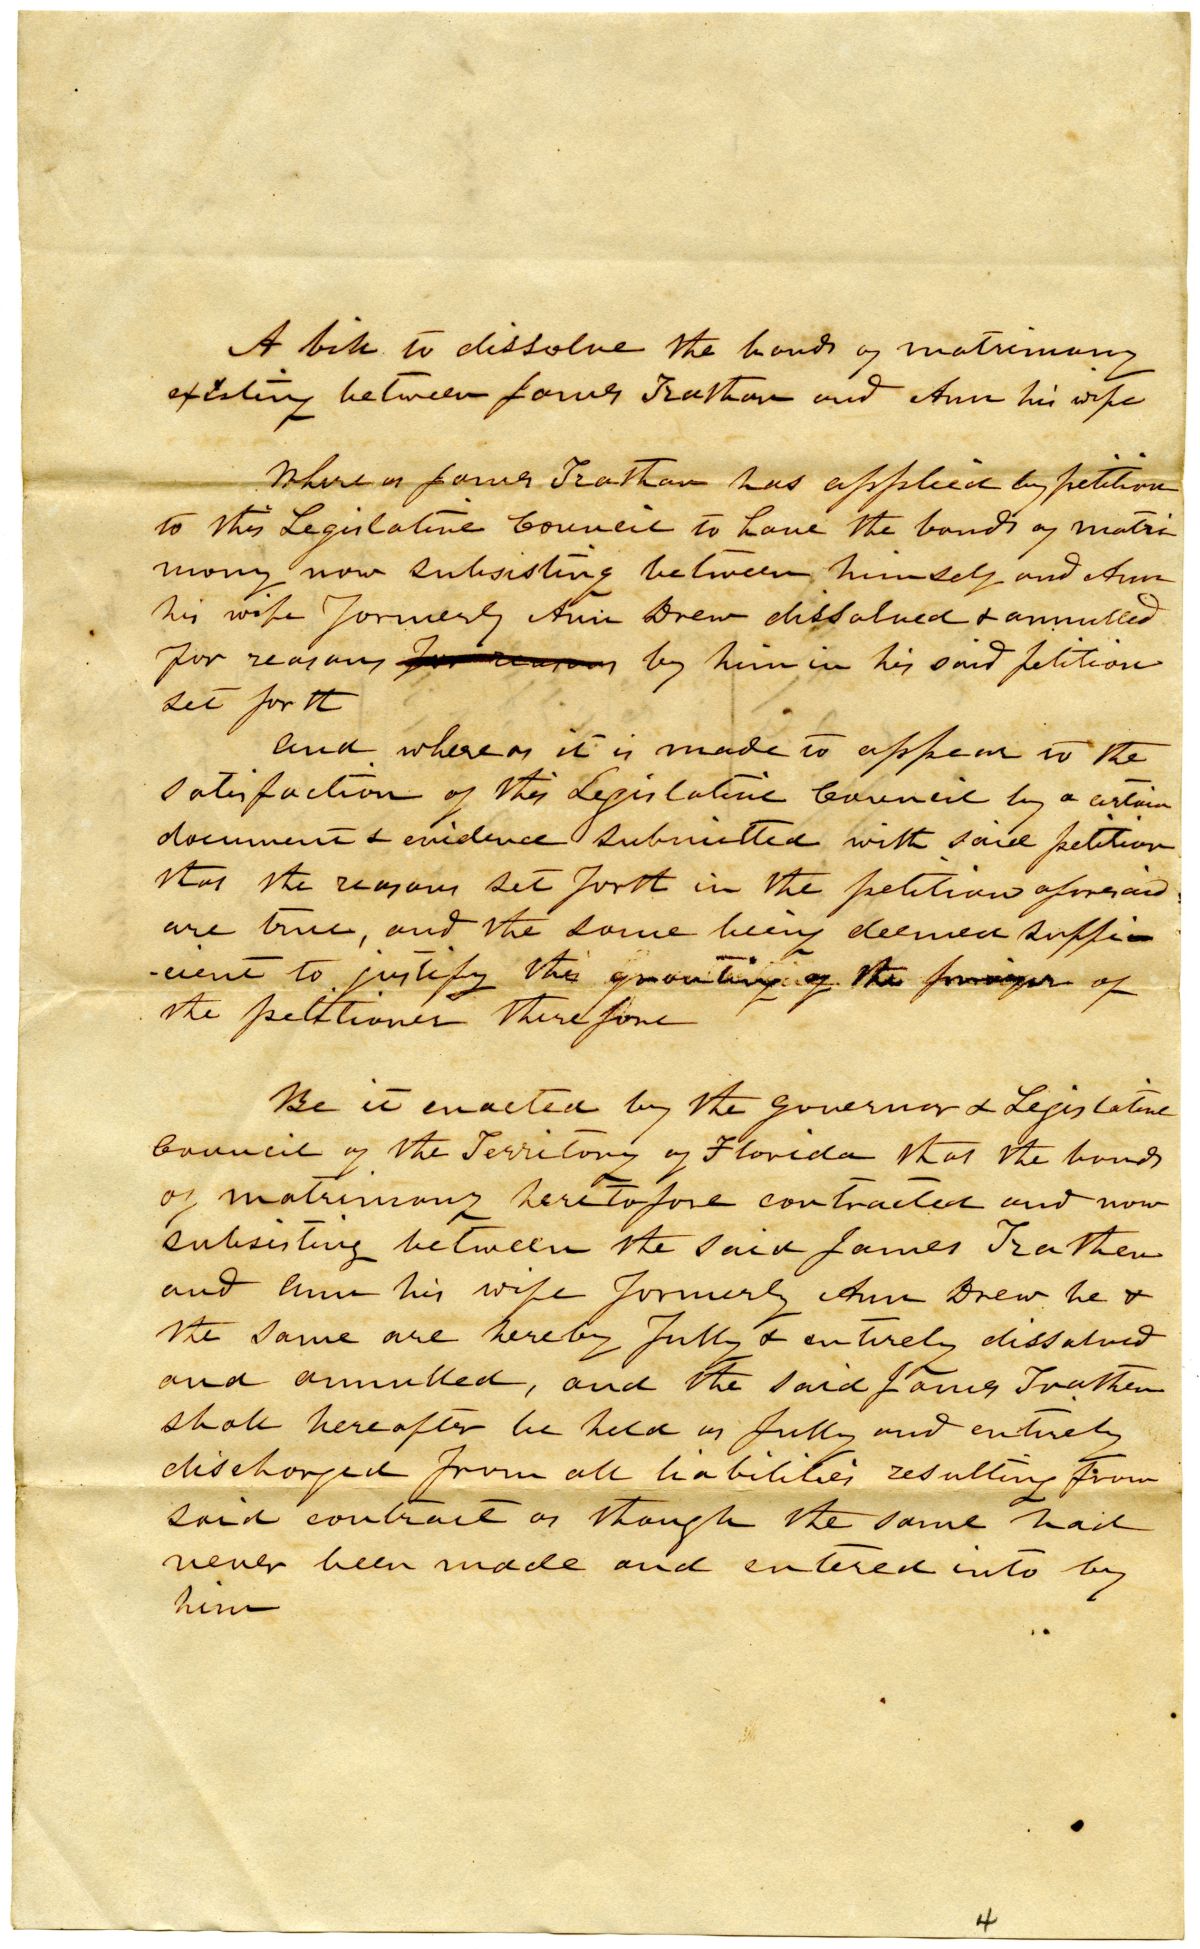 A bill to dissolve the bonds of matrimony
existing between James Trathan and Ann his wife
Where as James Trathan has applied by petition
to this Legislative Council to have the bonds of matri
mony now subsisting between himself and Ann
his wife formerly Ann Drew dissolved & annulled
for reasons for reasons by him in his said petition
set forth
And where as it is made to appear to the
satisfaction of this Legislative Council by a certain
document & evidence submitted with said petition
that the reasons set forth in the petition aforesaid
are true, and the same being deemed suffi-
-cient to justify this granting of the prayer of
the petitioner therefore
Be it enacted by the Governor & Legislative
Council of the Territory of Florida that the bonds
of matrimony heretofore contracted and now
subsisting between the said James Trathen
and Ann his wife formerly Ann Drew be &
the same are hereby fully & entirely dissolved
and annulled, and the said James Trathen
shall hereafter be held as fully and entirely
discharged from all liabilities resulting from
said contract as though the same had
never been made and entered into by
him
4